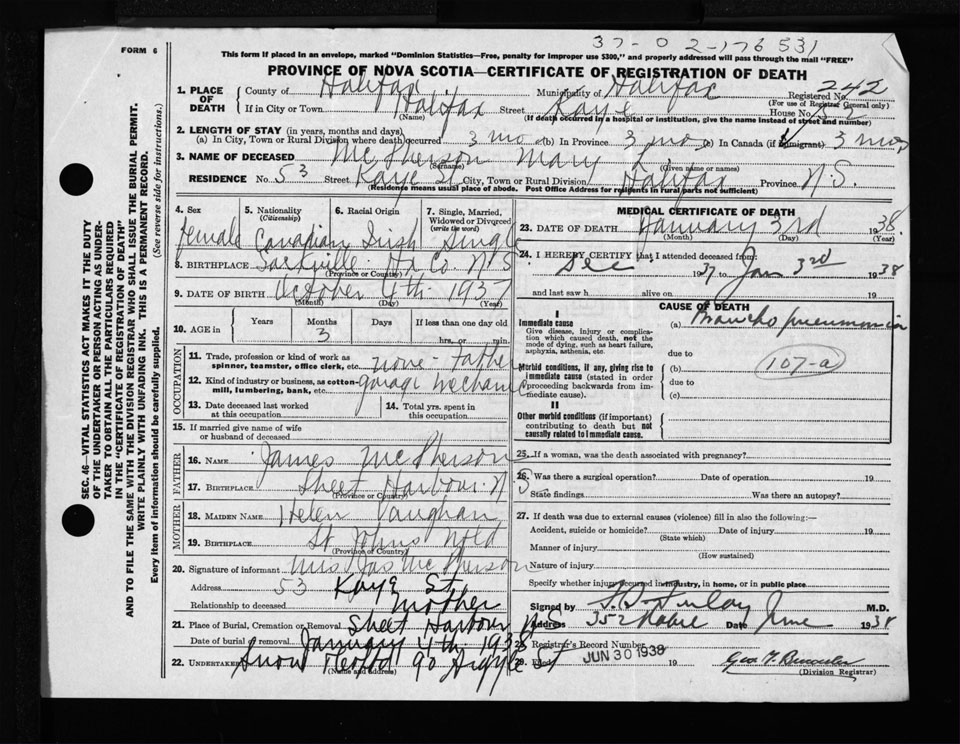 37-02-176 531
FORM 6
This form if placed in an envelope, marked "Dominion Statistics—Free, penalty for improper use $300," and properly addressed will pass through the mail "FREE"
PROVINCE OF NOVA SCOTIA—CERTIFICATE OF REGISTRATION OF DEATH
1. PLACE OF DEATH County of Halifax Municipality of Halifax Registered No. 242
(For use of Registrar General only)
If in City or Town Halifax Street Kaye House No.
(Name) (If death occurred in a hospital or institution, give the name instead of street and number)
2. LENGTH OF STAY (in years, months and days)
(a) In City, Town or Rural Division where death occurred 3 mo (b) In Province 3 mo (c) In Canada (if immigrant) 3 mos
3. NAME OF DECEASED McPherson Mary
(Surname) (Given name or names)
RESIDENCE No. 53 Street Kaye St City, Town or Rural Division Halifax Province N.S.
(Residence means usual place of abode. Post Office Address for residents in rural parts not sufficient)
4. Sex 5. Nationality (Citizenship) 6. Racial Origin 7. Single, Married, Widowed or Divorced (write the word)
female Canadian Irish Single
8. BIRTHPLACE Sackville Hx. Co. N.S.
(Province or Country)
9. DATE OF BIRTH October 4th 1937
(Month) (Day) (Year)
10. AGE in Years Months Days If less than one day old
3 hrs. or min.
OCCUPATION
11. Trade, profession or kind of work as spinner, teamster, office clerk, etc. none - father
12. Kind of industry or business, as cotton-mill, lumbering, bank, etc. garage mechanic
13. Date deceased last worked at this occupation
14. Total yrs. spent in this occupation
15. If married give name of wife or husband of deceased
FATHER
16. NAME James McPherson
17. BIRTHPLACE Sheet Harbour N S
(Province or Country)
MOTHER
18. MAIDEN NAME Helen Vaughan
19. BIRTHPLACE St Johns Nfld
(Province or Country)
20. Signature of informant Mrs Jas McPherson
Address 53 Kaye St.
Relationship to deceased Mother
21. Place of Burial, Cremation or Removal Sheet Harbour N S
Date of burial or removal January 4th 1938
22. UNDERTAKER Snow 90 Argyle St
(Name and address)
MEDICAL CERTIFICATE OF DEATH
23. DATE OF DEATH January 3rd 1938
(Month) (Day) (Year)
24. I HEREBY CERTIFY that I attended deceased from
Dec 1937 to Jan 3rd 1938
and last saw h alive on 19
CAUSE OF DEATH
I
Immediate cause
Give disease, injury or complication which caused death, not the mode of dying, such as heart failure, asphyxia, asthenia, etc.
(a) Broncho pneumonia
due to
Morbid conditions, if any, giving rise to immediate cause (stated in order proceeding backwards from immediate cause).
(b) 107-a
due to
(c)
II
Other morbid conditions (if important) contributing to death but not causally related to immediate cause.
25. If a woman, was the death associated with pregnancy?
26. Was there a surgical operation? Date of operation 19
State findings Was there an autopsy?
27. If death was due to external causes (violence) fill in also the following:—
Accident, suicide or homicide? Date of injury 19
(State which)
Manner of injury
(How sustained)
Nature of injury
Specify whether injury occurred in industry, in home, or in public place
Signed by Finlay M.D.
Address 352 Robie Date June 1938
28. Registrar's Record Number
29. Filed JUN 30 1938 19
(Division Registrar)
SEC. 46—VITAL STATISTICS ACT MAKES IT THE DUTY
OF THE UNDERTAKER OR PERSON ACTING AS UNDER-
TAKER TO OBTAIN ALL THE PARTICULARS REQUIRED
IN THE "CERTIFICATE OF REGISTRATION OF DEATH"
AND TO FILE THE SAME WITH THE DIVISION REGISTRAR WHO SHALL ISSUE THE BURIAL PERMIT.
WRITE PLAINLY WITH UNFADING INK. THIS IS A PERMANENT RECORD.
Every item of information should be carefully supplied. (See reverse side for instructions.)